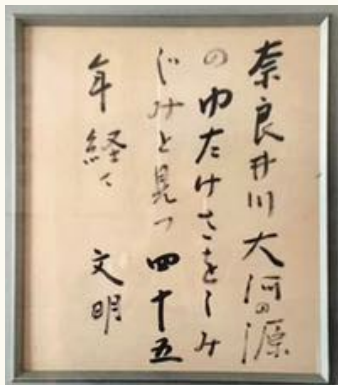 奈良井川大河の源
のゆたけさをしみ
じみと見つ四十五
年経て 文明